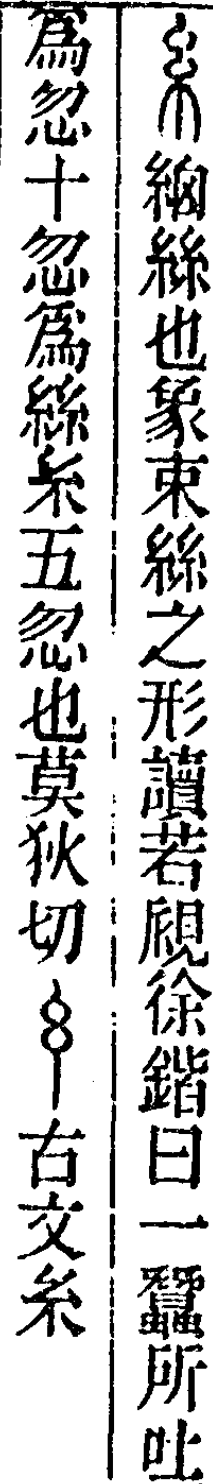 糸細絲也象束絲之形讀若覛徐鍇曰一蠶所吐
爲忽十忽爲絲糸五忽也莫狄切𢆯古文糸